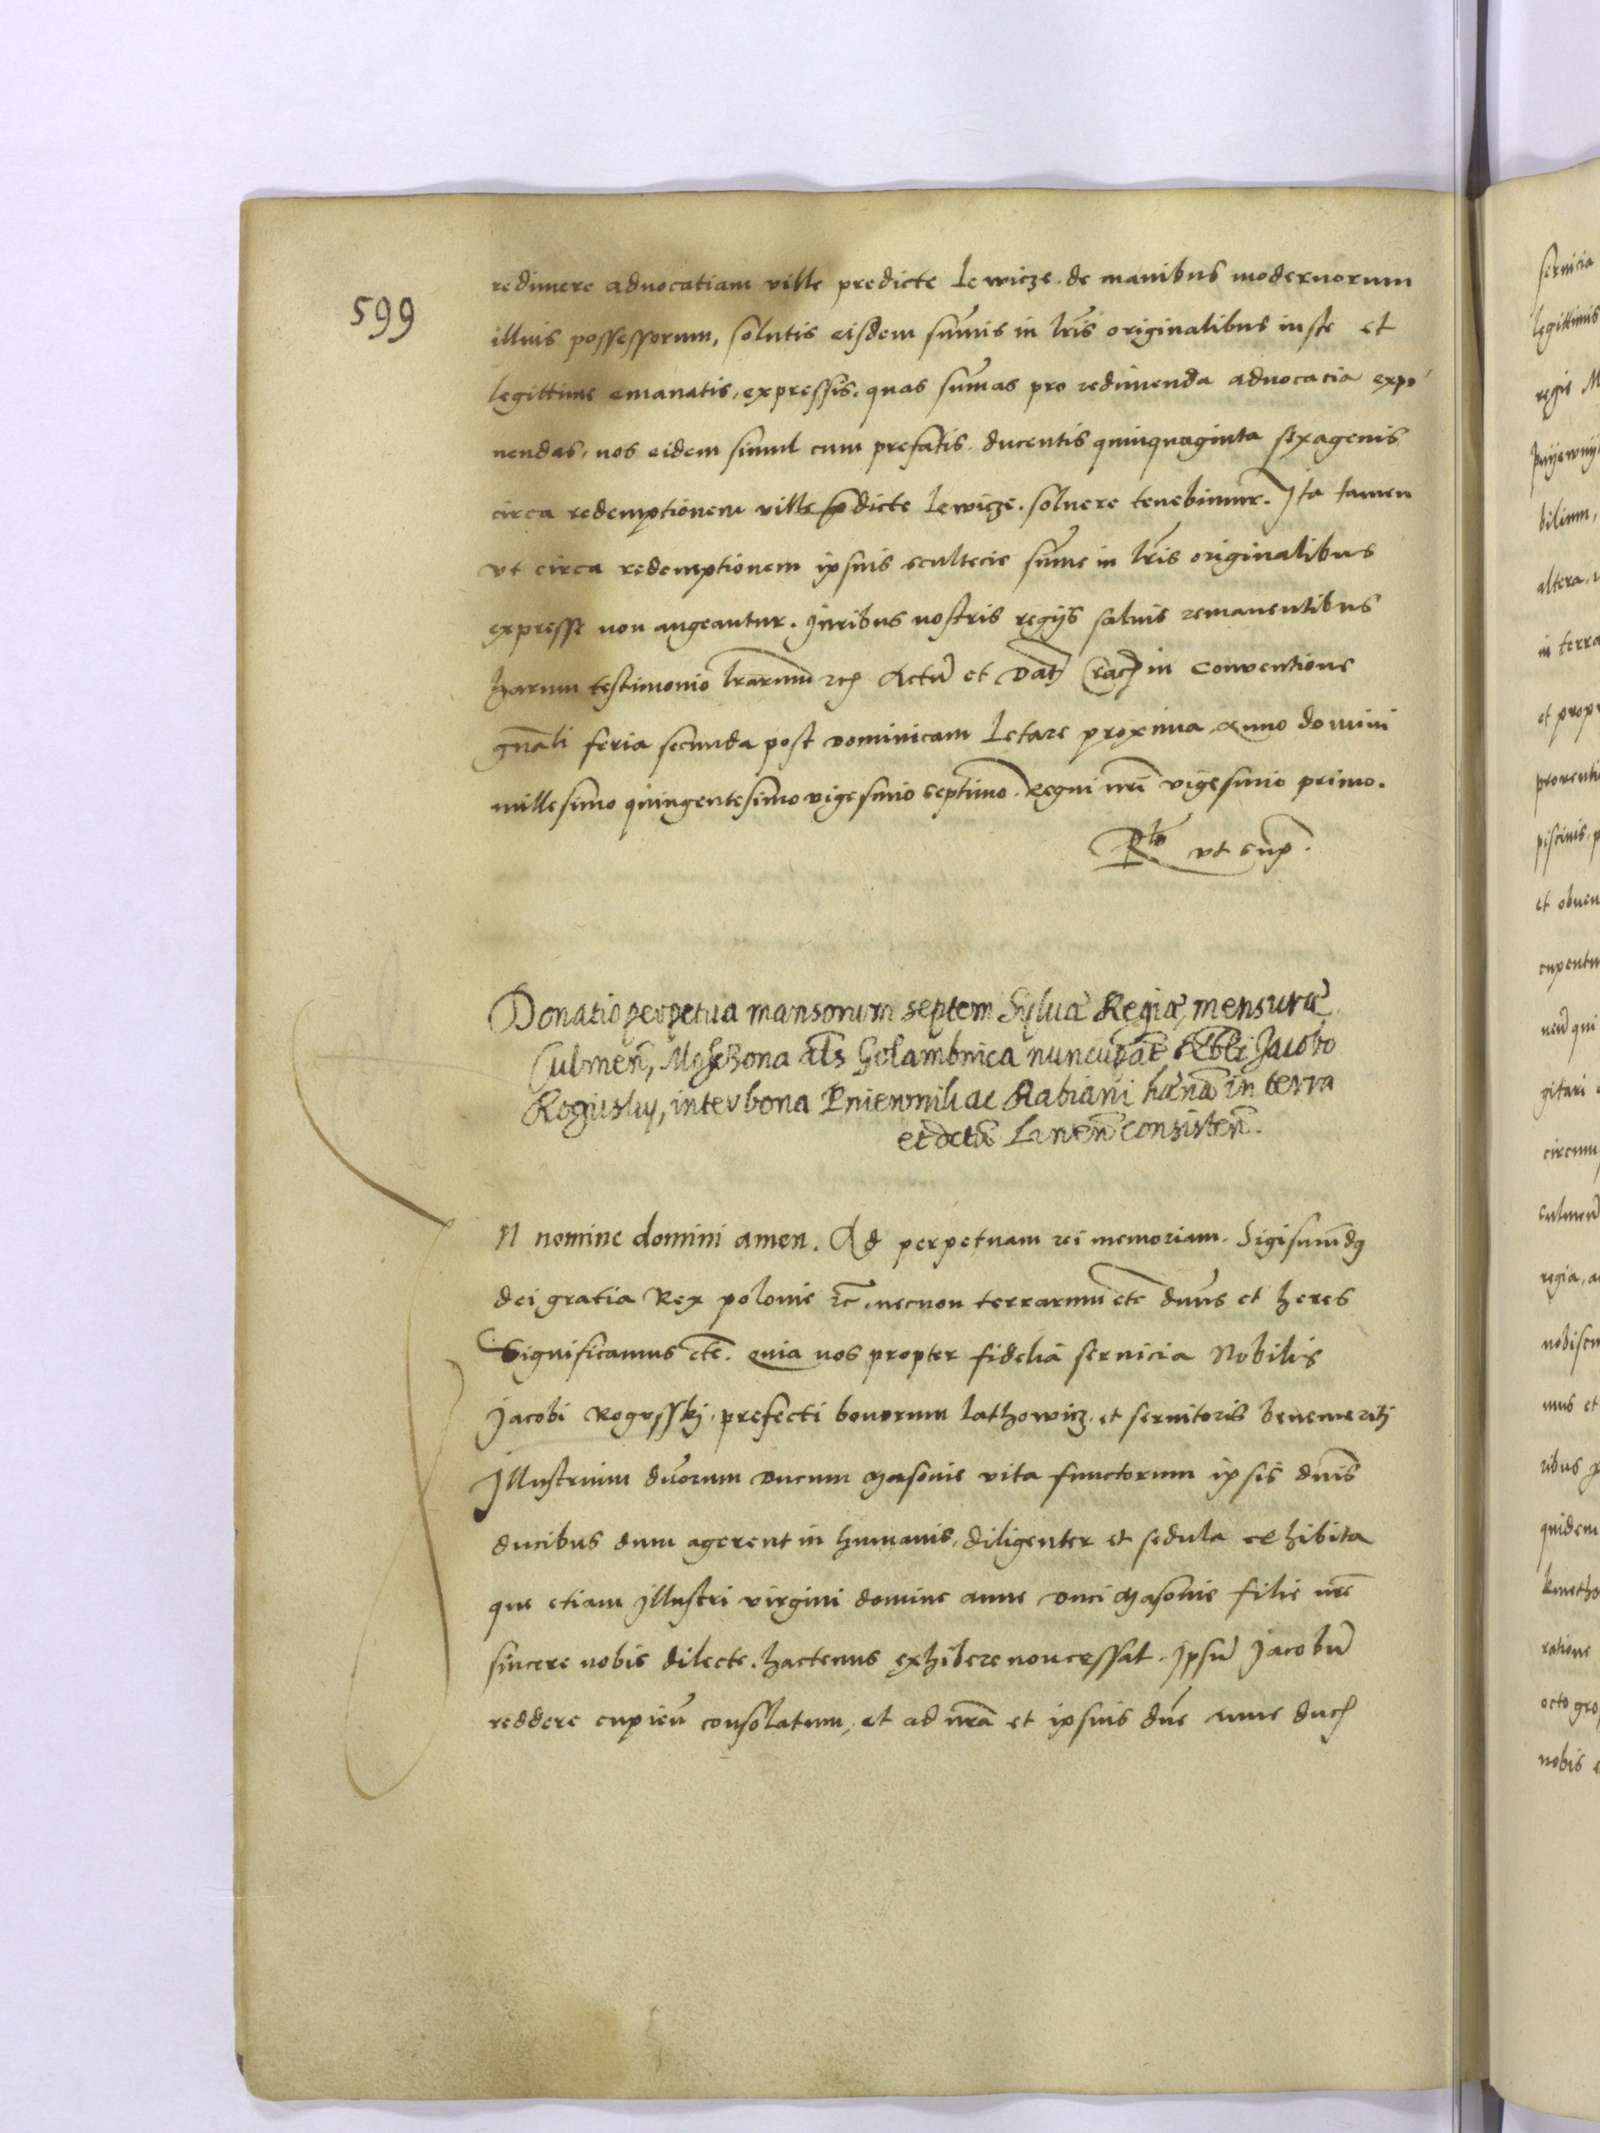 599
redimere aduocatiam ville predicte Lewicze. de manibus modernorum
illius possessorum, solutis eisdem sum̄is in lr̄is originalibus iuste et
legittime emanatis, expressis. quas sum̄as pro redimenda aduocacia expo
nendas, nos eidem simul cum prefatis. ducentis quinquaginta sexagenis
circa redemptionem ville p̄dicte Lewicze. soluere tenebimur. Ita tamen
vt circa redemptionem ipsius scultecie sum̄e in lr̄is originalibus
expresse non augeantur. Juribus nostris regijs saluis remanentibus
harum testimonio lrarum etc Actū et Dat Crac in Conuentione
gn̄ali feria secunda post dominicam Letare proxima Anno domini
millesimo quingentesimo vigesimo septimo. Regni nr̄i vigesimo primo.
Rlo vt sup.
Donatio perpetua mansorum septem Syluæ Regiæ, mensuræ
Culmen̄, Bona al̄s Golambnica nuncupat Nobli Jacobo
Roguslij, inter bona Pnienmik ac Rabiani in terra
et Liuen̄ consisten̄.
N nomine domini amen. Ad perpetuam rei memoriam. Sigismūdꝯ
dei gratia Rex polonie etc. necnon terrarum etc dn̄us et heres
Significamus etc. quia nos propter fidelia seruicia Nobilis
Jacobi Rogusskj. prefecti bonorum Lathowicz. et seruitoris benemeritj
Illustrium dn̄orum Ducum Masouie vita functorum ipsis dn̄is
ducibus dum agerent in humanis, diligenter et sedula exhibita
que etiam Illustri virgini domine anne Duci Masouie filie nr̄e
sincere nobis dilecte. hactenus exhibere non cessat. Ipsū Jacobū
reddere cupien̄ consolatum, et ad nr̄a et ipsius dn̄e Anne duc
seruicia
legittimis
regie M
bilium,
altera,
in terra
et propr
prouenti
piscinis, p
et obuen
cupentu
qui
gitari
circum
culmen̄
regia, a
nobiscum
mus et
ribus
quidem
kmetho
ratione
octo gro
nobis